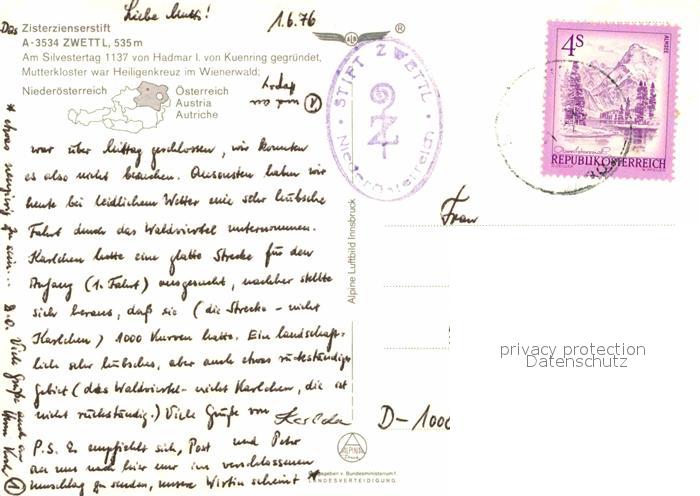 Liebe Mutti!
1.6.76
Das Zisterzienserstift
A-3534 ZWETTL, 535 m
Am Silvestertag 1137 von Hadmar I. von Kuenring gegründet,
Mutterkloster war Heiligenkreuz im Wienerwald;
Niederösterreich
Österreich
Austria
Autriche
war über Mittag geschlossen, wir konnten
es also nicht besuchen. Ansonsten haben wir
heute bei leidlichem Wetter eine sehr hübsche
Fahrt durch das Waldviertel unternommen.
Karlchen hatte eine glatte Strecke für den
Anfang (1. Fahrt) ausgesucht, nachher stellte
sich heraus, daß sie (die Strecke - nicht
Karlchen) 1000 Kurven hatte. Ein landschaft-
lich sehr hübsches, aber auch etwas rückständiges
Gebiet (das Waldviertel - nicht Karlchen, die ist
nicht rückständig.) Viele Grüße von
P.S. Es empfiehlt sich, Post und
an uns nach hier nur im verschlossenen
Umschlag zu senden, unsere Wirtin scheint *
* etwas neugierig zu sein... D.O. Viele Grüße auch
①
Ⓐ
STIFT ZWETTL
Niederösterreich
Alpine Luftbild Innsbruck
ALPINA
Druck
freigegeben v. Bundesministerium f.
LANDESVERTEIDIGUNG
4S
ALMSEE
REPUBLIK ÖSTERREICH
Frau
D-1000
privacy protection
Datenschutz